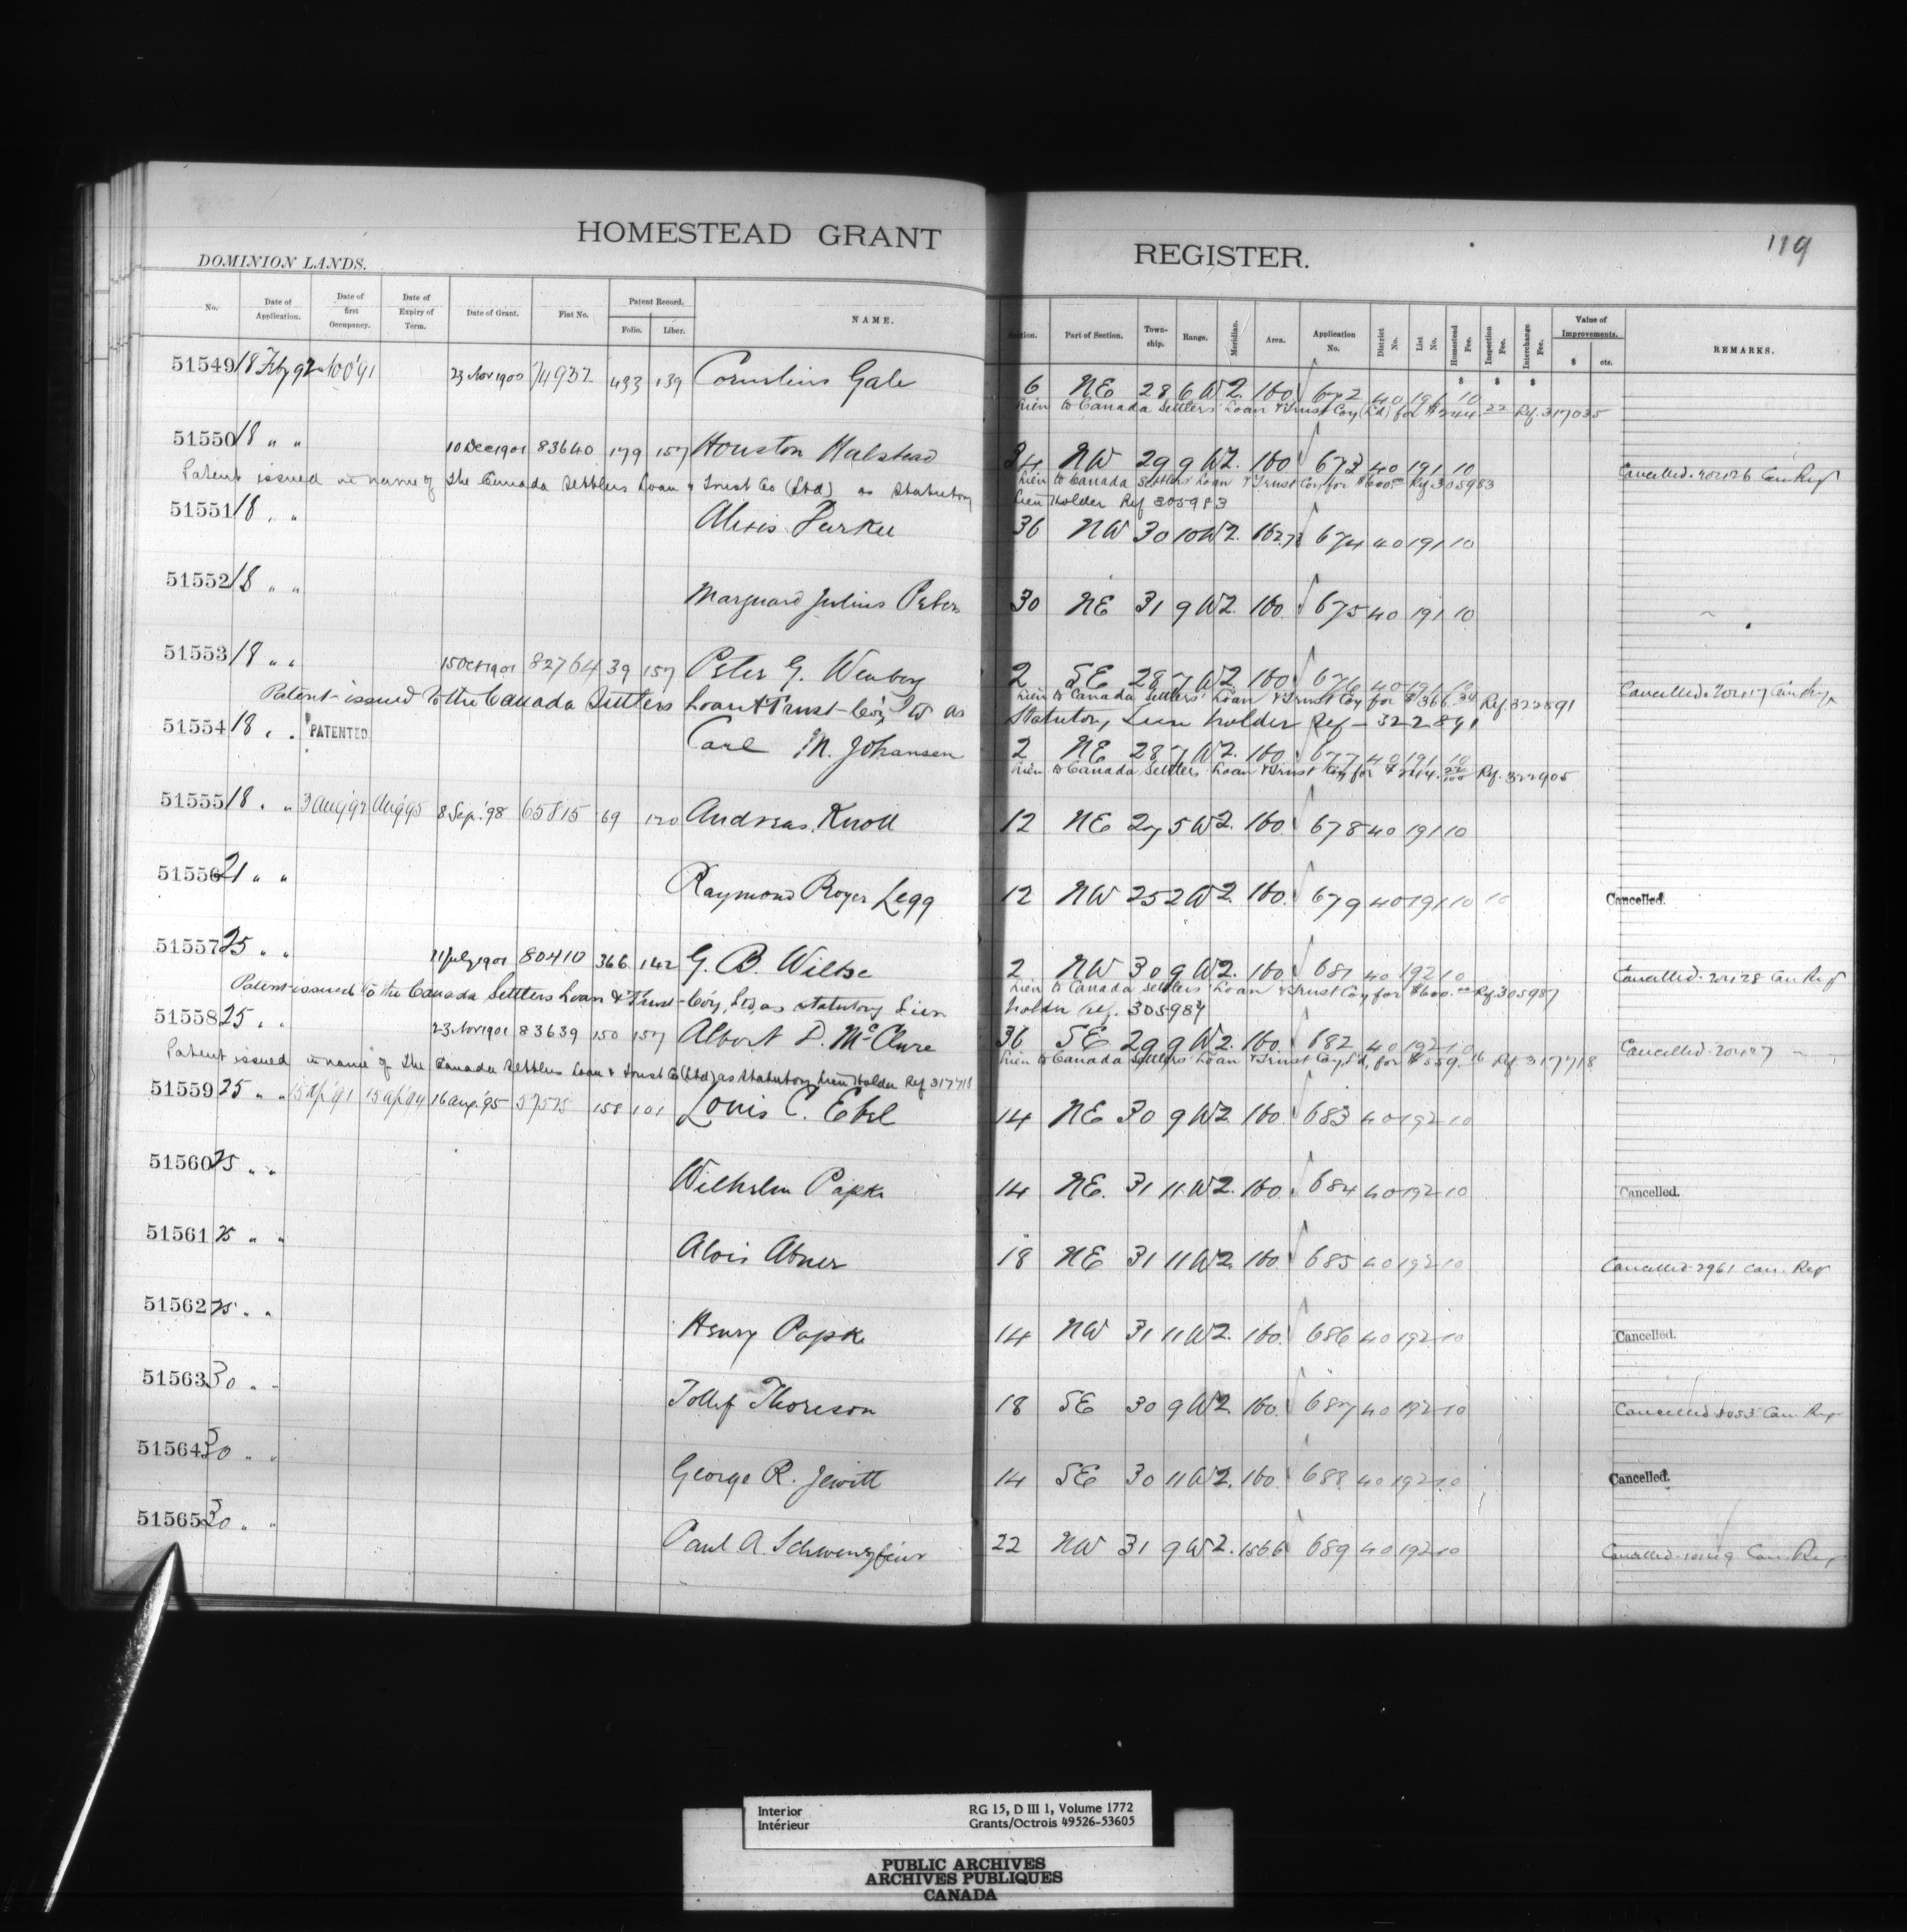 HOMESTEAD GRANT REGISTER.
119
DOMINION LANDS.
No. Date of Application. Date of first Occupancy. Date of Expiry of Term. Date of Grant. Fiat No. Patent Record. Folio. Liber. NAME. Section. Part of Section. Town-ship. Range. Meridian. Area. Application No. District No. List No. Homestead Fee. Inspection Fee. Interchange Fee. Value of Improvements. $ cts. REMARKS.
$ $ $
51549 18 Feby 92 23 Nov 1900 74932 433 139 Cornelius Gale 6 NE 28 6 W2. 160. 672 40 191 10
Lien to Canada Settlers' Loan & Trust Coy (Ld) for $244 22 Ref. 317035
51550 18 " " 10 Dec 1901 83640 179 157 Houston Halstead 34 NW 29 9 W2. 160 673 40 191 10 Cancelled. Can Ref
Patent issued in name of the Canada Settlers Loan & Trust Co (Ltd) as Statutory
Lien to Canada Settlers' Loan & Trust Coy for $600.00 Ref. 305983
Lien Holder Ref 305983
51551 18 " " Alexis Parker 36 NW 30 10 W2. 674 40 191 10
51552 18 " " Marquard Julius Peters 30 NE 31 9 W2. 160. 675 40 191 10
51553 18 " " 15 Oct 1901 82764 39 157 Peter G. 2 SE 28 7 W2 160 676 40 191 10 Cancelled. 20417 Can Ref
Lien to Canada Settlers' Loan & Trust Coy for $366. 34 Ref. 322891
Patent issued to the Canada Settlers Loan & Trust Co'y Ltd as Statutory Lien holder Ref - 322891
51554 18 " " PATENTED Carl M. Johansen 2 NE 28 7 W2. 160. 677 40 191 10
Lien to Canada Settlers' Loan & Trust Coy for $244. 22/100 Ref. 322905
51555 18 " " 3 Aug '92 Aug '95 8 Sep. '98 65815 69 120 Andreas Knoll 12 NE 27 5 W2. 160. 678 40 191 10
51556 21 " " Raymond Roger Legg 12 NW 25 2 W2. 160. 679 40 191 10 10 Cancelled.
51557 25 " " 11 July 1901 80410 366 142 G. B. Wiltse 2 NW 30 9 W2. 160. 681 40 192 10 Cancelled. 20428 Can Ref
Lien to Canada Settlers' Loan & Trust Coy for $600.00 Ref. 305987
Patent issued to the Canada Settlers Loan & Trust Co'y, Ltd, as statutory Lien holder ref. 305987
51558 25 " " 23 Nov 1901 83639 150 157 Albert D. McClure 36 SE 29 9 W2. 160. 682 40 192 10 Cancelled 20427 " "
Lien to Canada Settlers' Loan & Trust Coy L'd, for $559. 16 Ref. 317718
Patent issued in name of the Canada Settlers Loan & Trust Co (Ltd) as Statutory Lien Holder Ref 317718
51559 25 " " 15 Ap'91 15 Ap'94 16 Aug. '95 57575 158 101 Louis C. Ebel 14 NE 30 9 W2. 160. 683 40 192 10
51560 25 " " Wilhelm Papke 14 NE. 31 11 W2. 160. 684 40 192 10 Cancelled.
51561 25 " " Alois Abner 18 NE 31 11 W2. 160. 685 40 192 10 Cancelled 2961 Can. Ref
51562 25 " " Henry Papke 14 NW 31 11 W2. 160. 686 40 192 10 Cancelled.
51563 30 " " Tollef Thoreson 18 SE 30 9 W2 160. 687 40 192 10 Cancelled Can. Ref
51564 30 " " George R. Jewitt 14 SE 30 11 W2. 160. 688 40 192 10 Cancelled.
51565 30 " " Paul A. 22 NW 31 9 W2. 689 40 192 10 Cancelled Can. Ref
Interior RG 15, D III 1, Volume 1772
Intérieur Grants/Octrois 49526-53605
PUBLIC ARCHIVES
ARCHIVES PUBLIQUES
CANADA